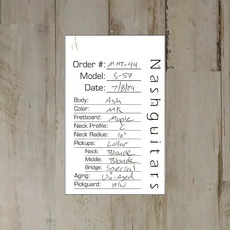 Order #: MMT-94
Model: S-57
Date: 7/8/24
Body: Ash
Color: MK
Fretboard: Maple
Neck Profile: C
Neck Radius: 10"
Pickups: Lollar
Neck: Blonde
Middle: Blonde
Bridge: Special
Aging: Un-Aged
Pickguard:
Nashguitars